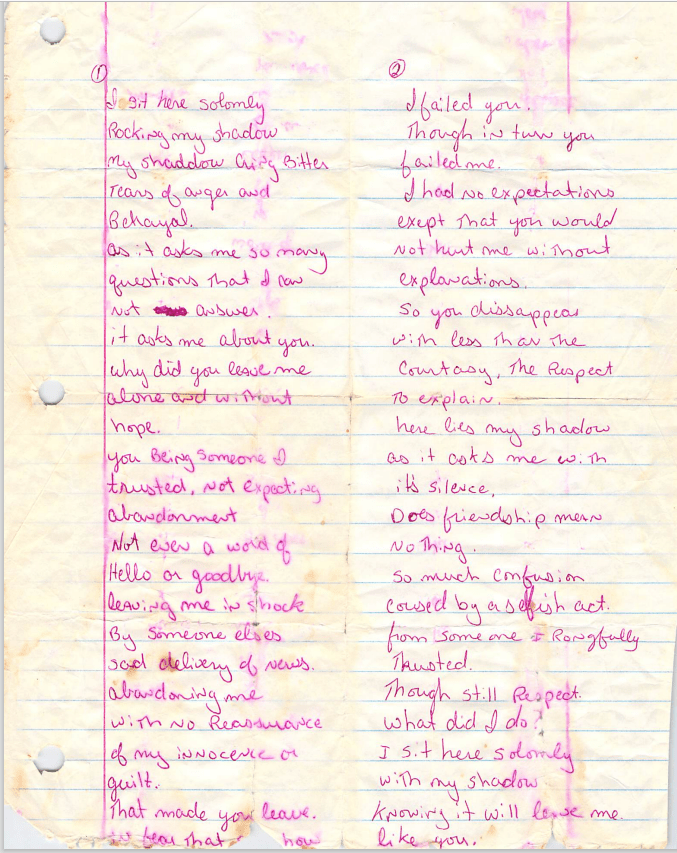 ①
I sit here solomly
Rocking my shadow
my shaddow Criing Bitter
Tears of anger and
Betrayal.
as it asks me so many
questions That I can
not answer.
it asks me about you.
why did you leave me
alone and without
hope.
you Being someone I
trusted, not expecting
abandonment
Not even a word of
Hello or goodbye.
leaving me in shock
By someone elses
sad delivery of news.
abandoning me
with no Reassurance
of my innocence or
guilt.
That made you leave.
in fear that how
②
I failed you.
Though in turn you
failed me.
I had no expectations
exept That you would
not hurt me without
explanations.
So you dissappear
with less than the
Courtasy, The Respect
To explain.
here lies my shadow
as it asks me with
it's silence,
Does friendship mean
nothing.
So much confusion
caused by a selfish act.
from someone I Rongfully
Trusted.
Though still Respect.
what did I do?
I sit here solomly
with my shadow
knowing it will leave me.
like you.